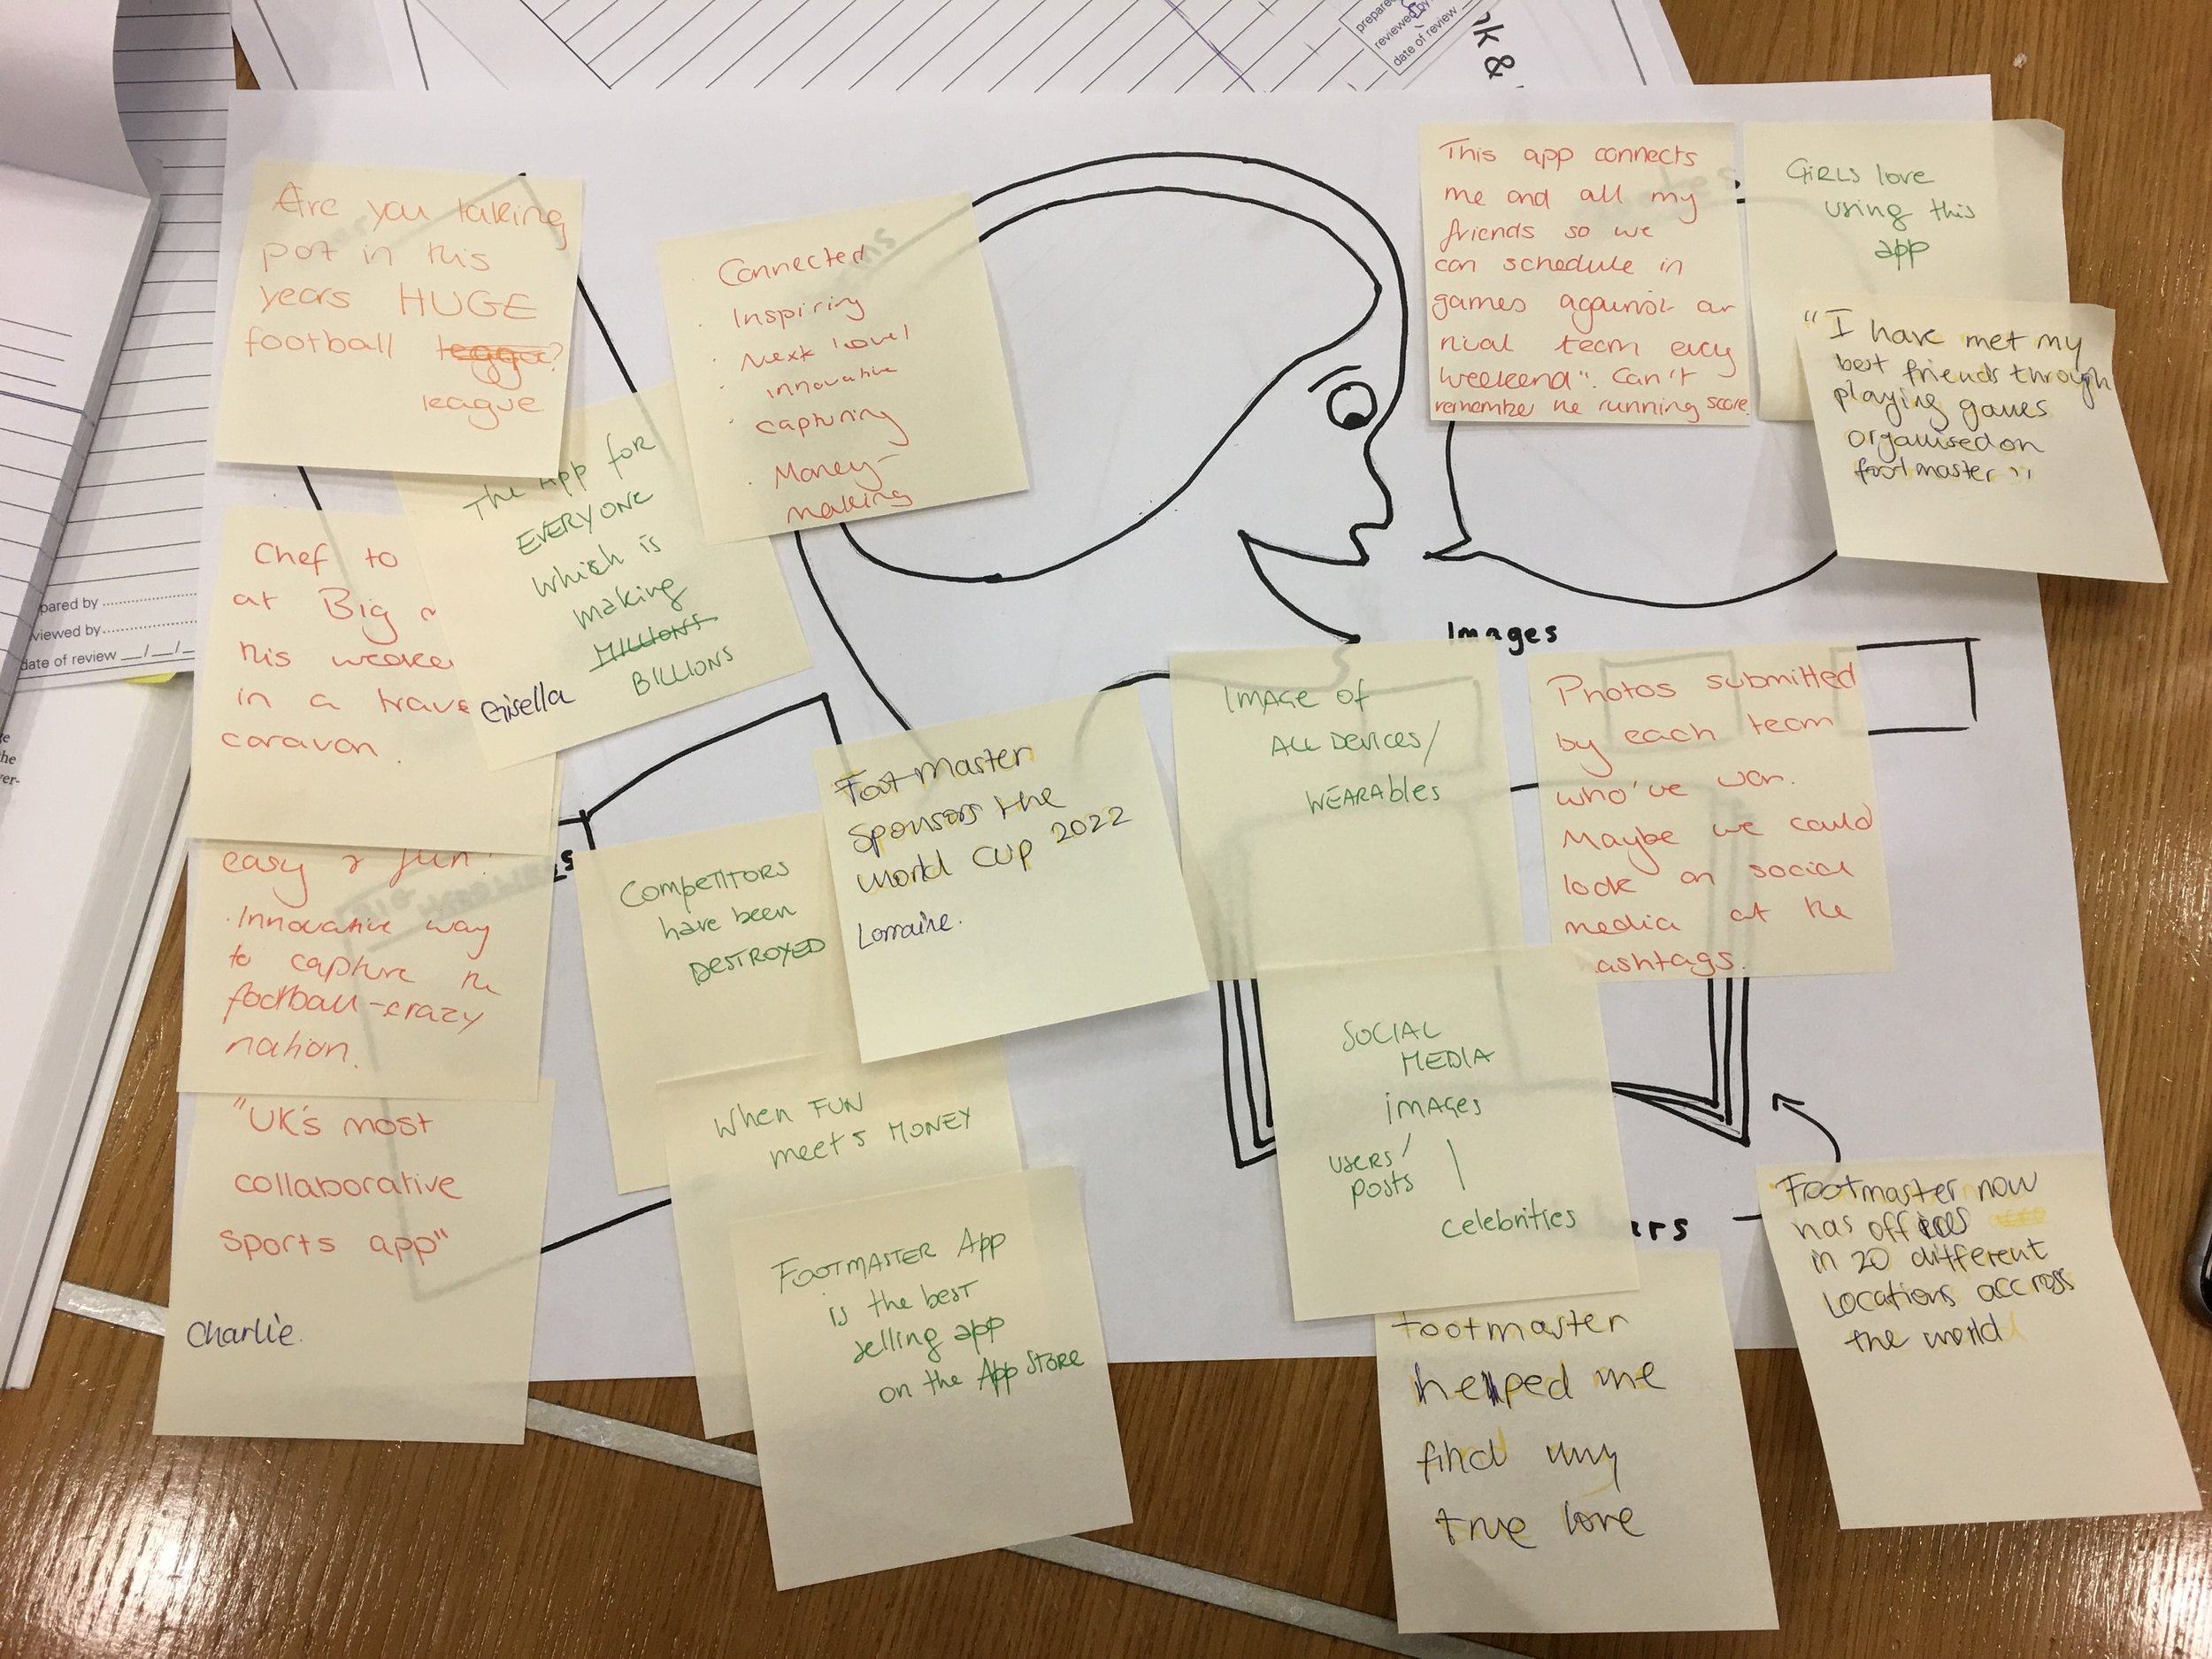 prepared
reviewed by
date of review
nk &
pared by
viewed by
date of review __/__/__
he
ver-
Are you taking
pot in this
years HUGE
football teggue?
league
Connected
Inspiring
Next level
innovative
capturing
Money-
making
This app connects
me and all my
friends so we
can schedule in
games against our
rival team every
weekend". Can't
remember the running score.
GiRLS love
using this
app
"I have met my
best friends through
playing games
organised on
footmaster"
The App for
EVERYONE
which is
making
MILLIONS
BILLIONS
Gisella
Chef to
at Big
this
in a
caravan.
easy & fun!
· Innovative way
to capture the
football-crazy
nation.
"UK's most
collaborative
sports app"
Charlie.
s
Competitors
have been
DESTROYED
Footmaster
Sponsors the
world cup 2022
Lorraine.
When FUN
meets MONEY
FOOTMASTER App
is the best
selling app
on the App Store
Images
IMAGE of
ALL DEVICES/
WEARAbles
Photos submitted
by each team
who've won.
Maybe we could
look on social
media at the
ashtags.
SOCIAL
MEDIA
iMAGES
USERS/
posts
celebrities
ers
footmaster
helped me
find my
true love
Footmaster now
has offices
in 20 different
Locations accross
the world